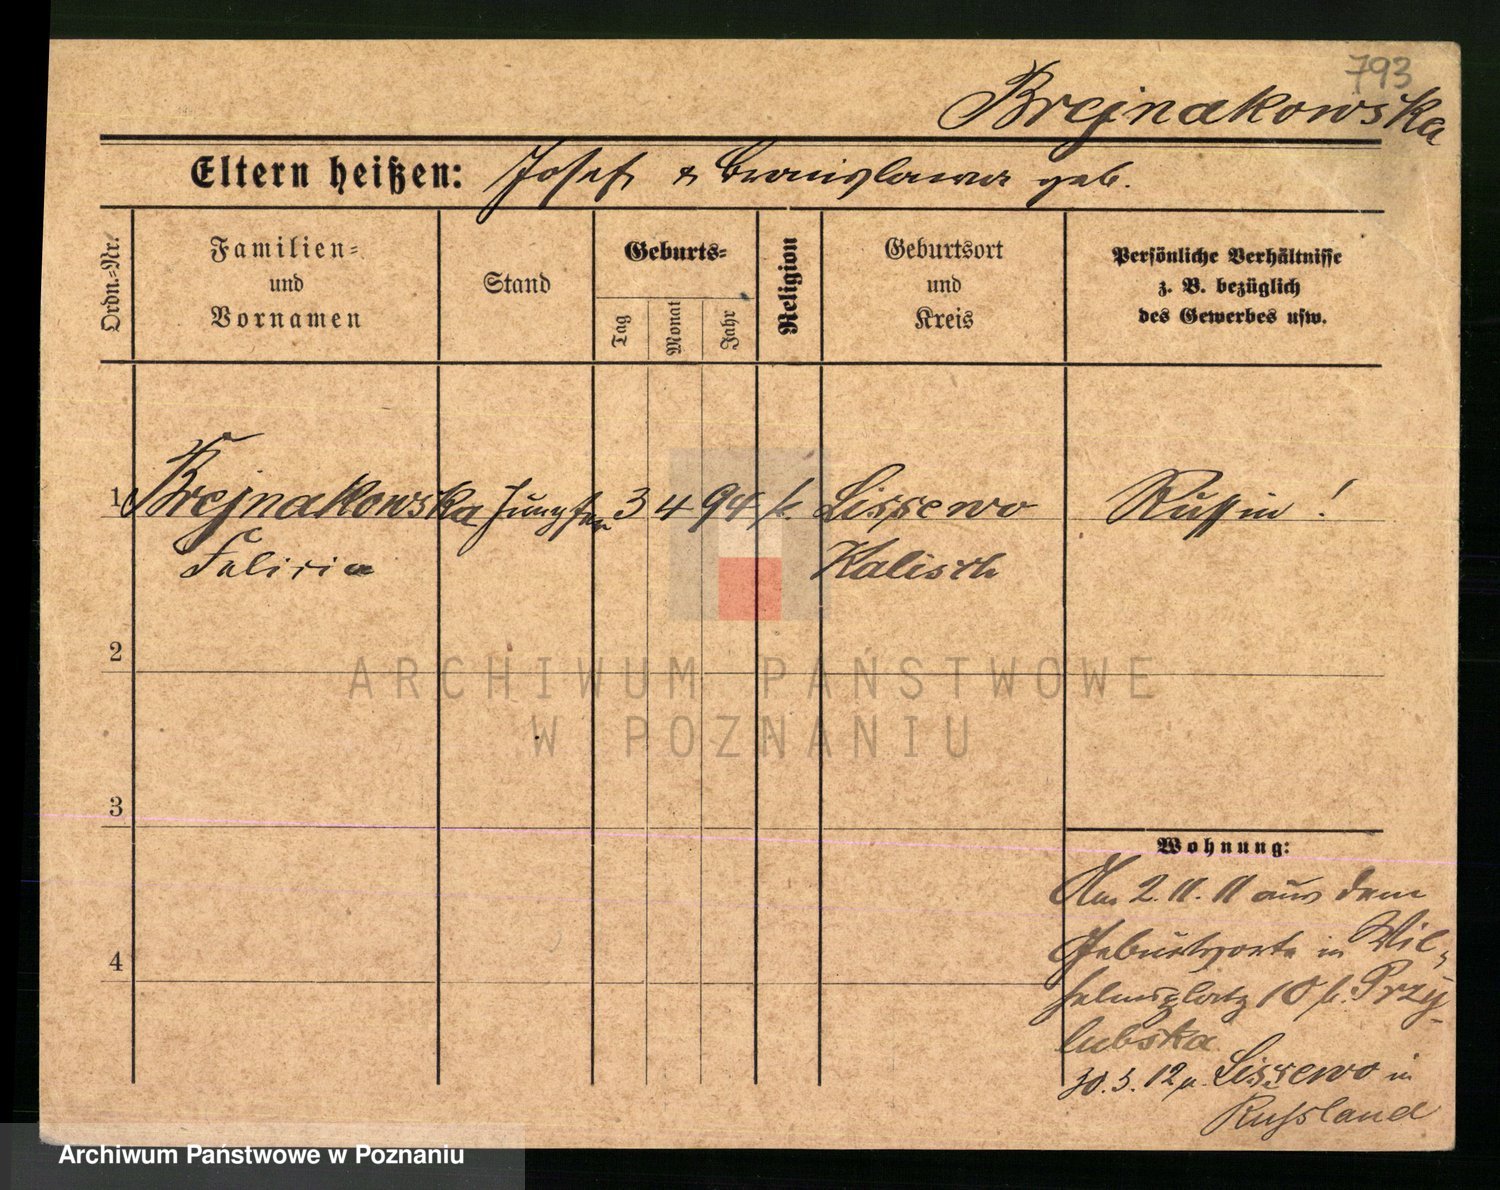 793
Brejnakowska
Eltern heißen: Josef & Bronislawa geb.
Ordn.-Nr.
Familien-
und
Vornamen
Stand
Geburts-
Tag
Monat
Jahr
Religion
Geburtsort
und
Kreis
Persönliche Verhältnisse
z. B. bezüglich
des Gewerbes usw.
1 Brejnakowska Jungfrau 3 4 94 k. Lissewo Russin!
Felicia Kalisch
2
3
4
ARCHIWUM PAŃSTWOWE
W POZNANIU
Wohnung:
Am 2.11.11 aus dem
Geburtsorte in Wil-
helmsplatz 10 b. Przy-
lubska
30.3.12 n. Lissewo in
Russland
Archiwum Państwowe w Poznaniu